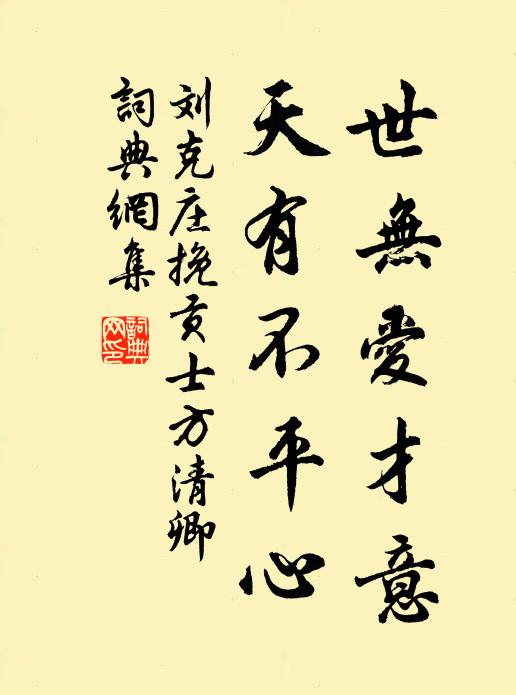 世無愛才意
天有不平心
刘克庄挽贡士方清卿
詞典網集
詞典
网印